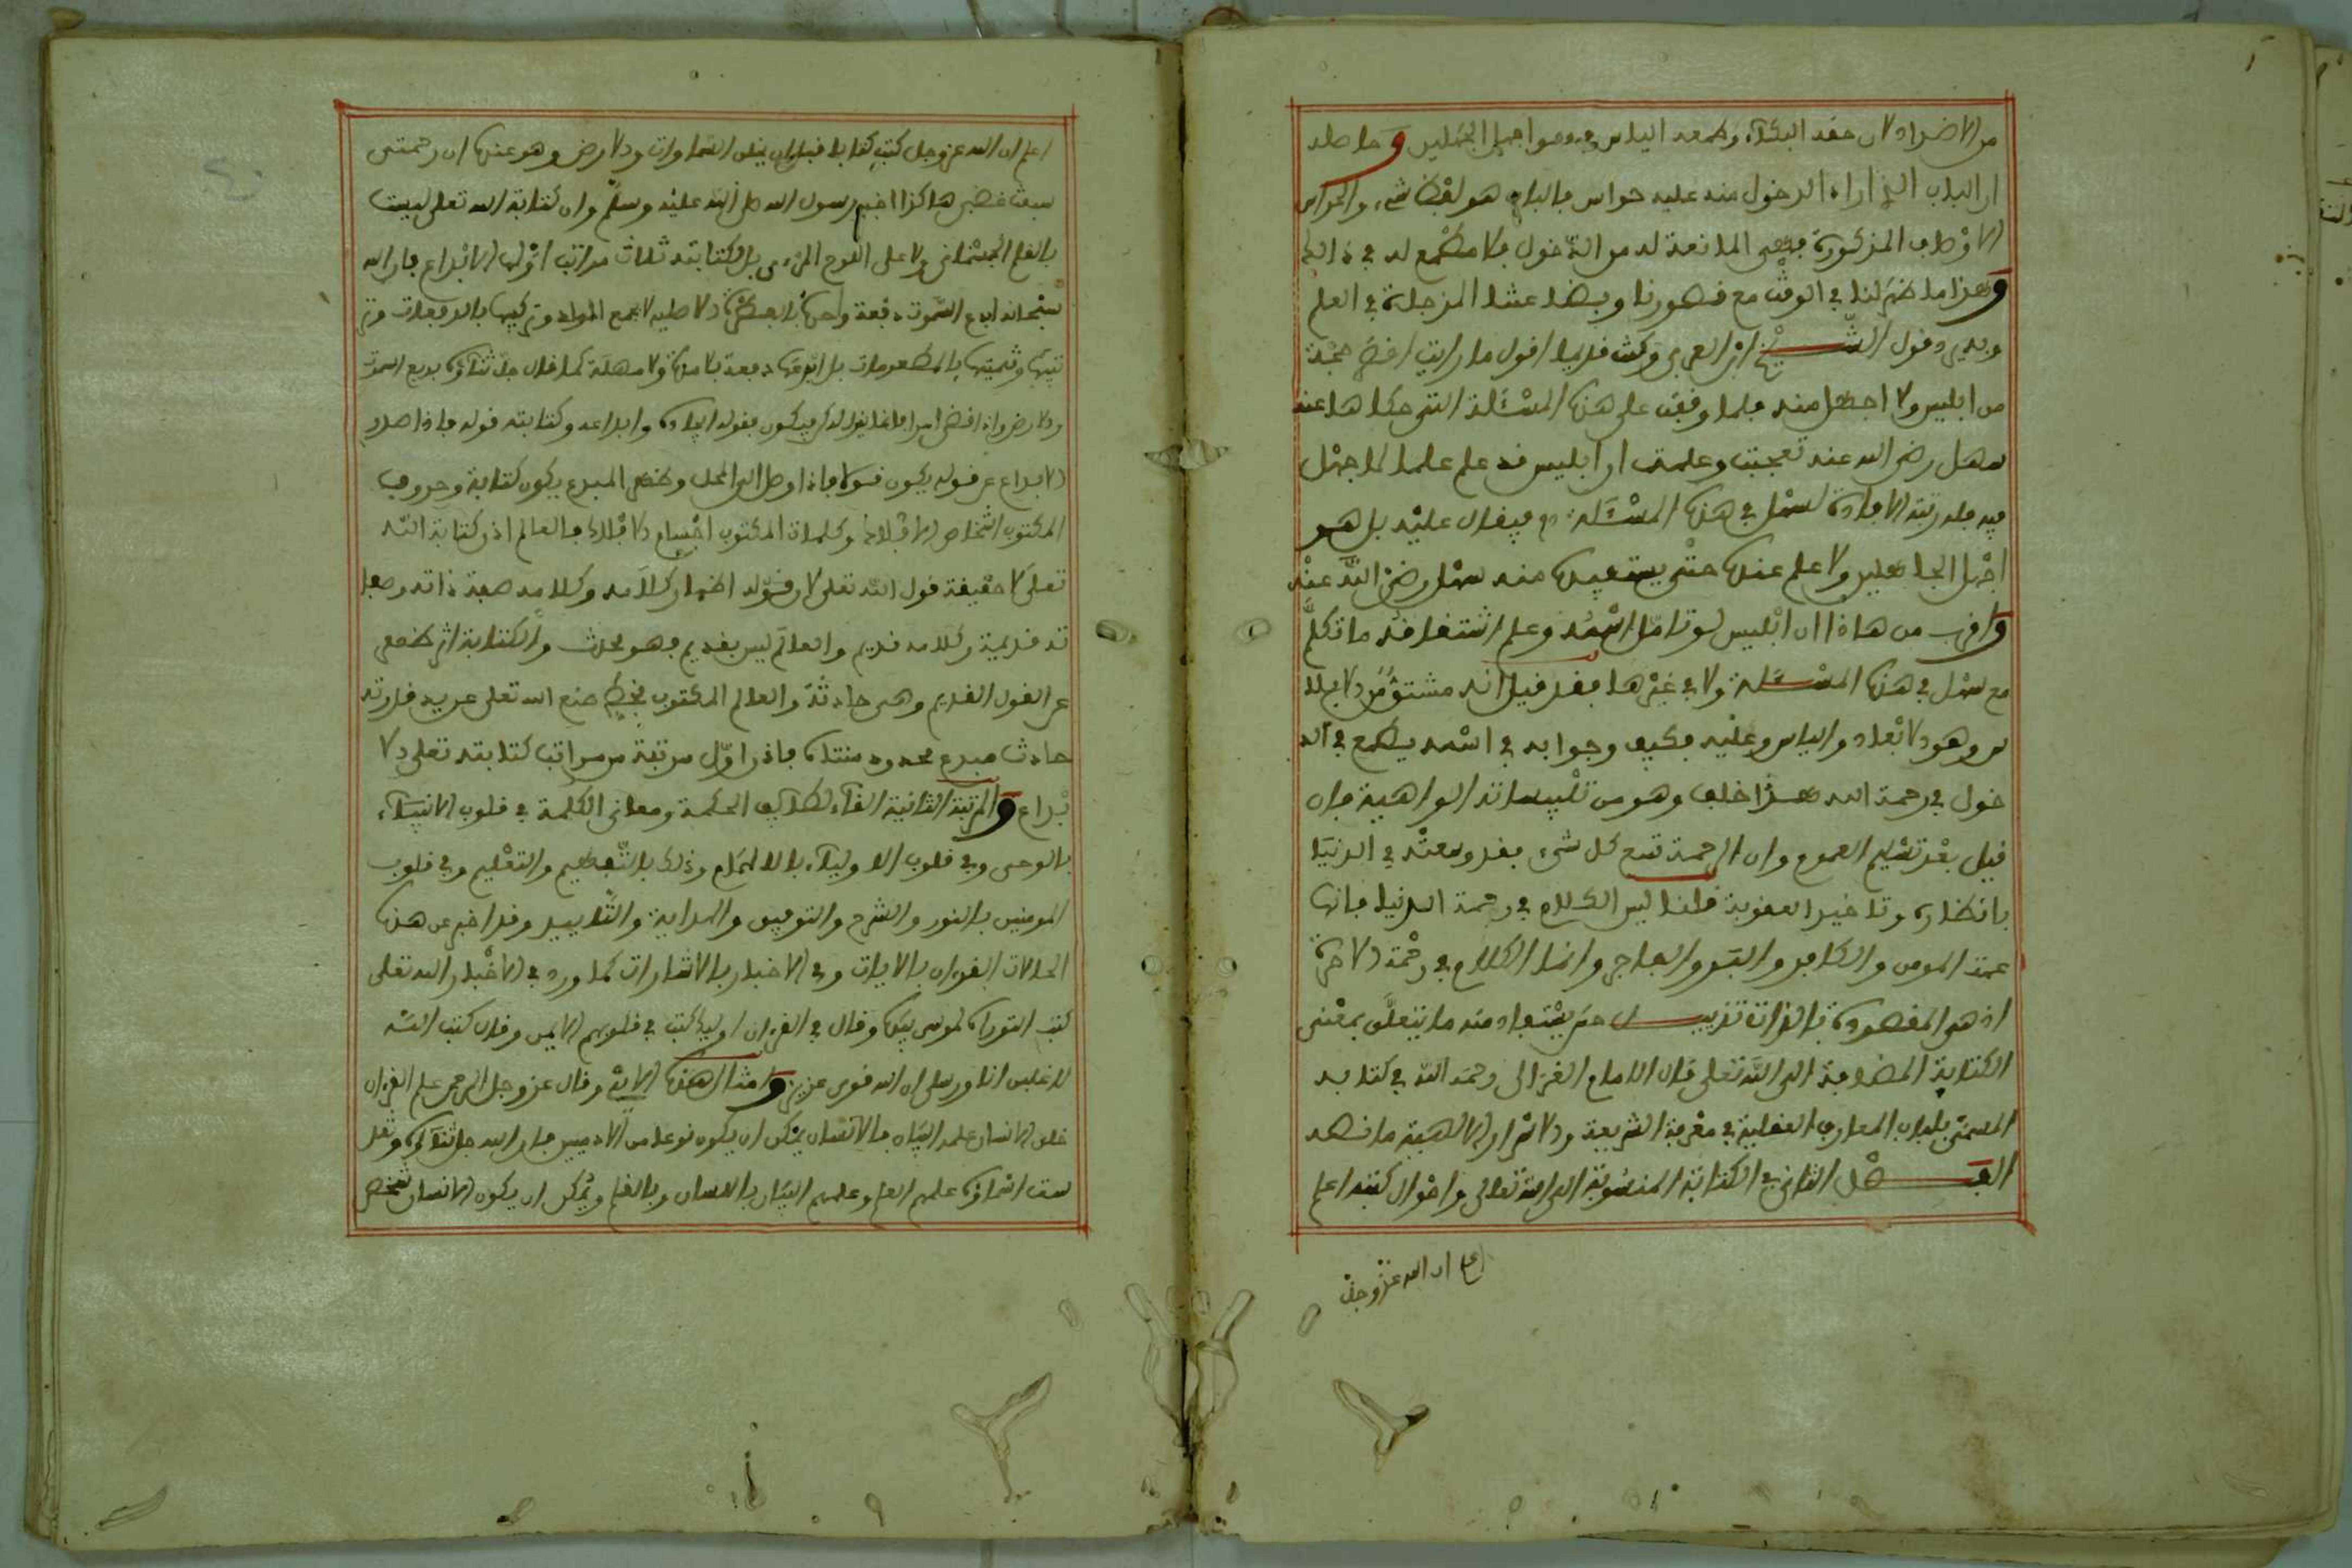 من الاضداد لان حقه البكاء وطمعه الياس فهو اجهل الجاهلين وحاصله
ان الباب الذي اراد الدخول منه عليه حراس فالباب هو لفظ شيء والحراس
الاوصاف المذكورة فهي المانعة له من الدخول فلا مطمع له في ذالك
وهذا ما ظهر لنا في الوقت مع قصورنا وبضاعتنا المزجاة في العلم
وقول الشيخ ابن العربي وكنت قديما اقول ما رايت اقصر حجة
من ابليس ولا اجهل منه فلما وقفت على هذه المسئلة التي حكاها عنه
سهل رضي الله عنه تعجبت وعلمت ان ابليس قد علم علما لا جهل
فيه فله رتبة الافادة لسهل في هذه المسئلة فيقال عليه بل هو
اجهل الجاهلين ولا علم عنده حتى يستفيده منه سهل رضي الله عنه
واقرب من هاذا ان ابليس لو تامل اسمه وعلم اشتقاقه ما تكلم
مع سهل في هذه المسئلة ولا في غيرها فقد قيل انه مشتق من الابلا
س وهو الابعاد والياس وعليه فكيف وجوابه في اسمه يطمع في الد
خول في رحمة الله هذا خلف وهو من تلبيساته الواهية فان
قيل بعد تسليم العموم وان الرحمة تسع كل شيء فقد وسعته في الدنيا
بانظاره وتاخير العقوبة قلنا ليس الكلام في رحمة الدنيا فانها
عمت المومن والكافر والبر والفاجر وانما الكلام في رحمة الاخرة
اذ هي المقصودة بالذات تذييل حتى يستفاد منه ما يتعلق بمعنى
الكتابة المضافة الى الله تعلى قال الامام الغزالي رحمه الله في كتابه
المسمى بلباب المعارف العقلية في معرفة الشريعة والاسرار الالهية ما نصه
الفصل الثاني في الكتابة المنسوبة الى الله تعالى واحوال كتبه اعلم
اعلم ان الله عز وجل
اعلم ان الله عز وجل كتب كتابا قبل ان يخلق السماوات والارض وهو عنده ان رحمتي
سبقت غضبي هاكذا اخبر رسول الله صلى الله عليه وسلم وان كتابة الله تعلى ليست
بالقلم الجسماني ولا على اللوح المرءى بل لكتابته ثلاث مراتب اولها الابداع فان الله
سبحانه ابدع السموت دفعة واحدة لا بجمع المواد وتركيبها بالدفعات وتر
تيبها بل ابدعها دفعة بلا مدة ولا مهلة كما قال جل ثناؤه بديع السموت
والارض واذا قضى امرا فانما يقول له كن فيكون فقوله ايجاده وابداعه وكتابته قوله فاذا صدر
الابداع عن قوله يكون قولا فاذا وصل الى المحل وظهر المبدع يكون كتابة وحروف
المكتوب اشخاص الافلاك وكلمات المكتوب اجسام الافلاك فالعالم اذن كتابة الله
تعلى لا حقيقة قول الله تعلى لان قوله اظهار كلامه وكلامه صفة ذاته وصفا
ته قديمة وكلامه قديم والعالم ليس بقديم فهو محدث والكتابة اثر ظهر
عن القول القديم وهي حادثة والعالم المكتوب بخط صنع الله تعلى عن يد قدرته
حادث مبدع محدود متناه فاذن اول مرتبة من مراتب كتابته تعلى الا
بداع والمرتبة الثانية القاء لطائف الحكمة ومعاني الكلمة في قلوب الانبياء
بالوحي وفي قلوب الاولياء بالالهام وذلك بالتفهيم والتعليم وفي قلوب
المومنين بالنور والشرح والتوفيق والهداية والتاييد وقد اخبر عن هذه
الحالات القرءان بالايات وفي الاخبار بالاشارات كما ورد في الاخبار ان الله تعلى
كتب التوراة لموسى بيده وقال في القرءان اوليك كتب في قلوبهم الايمن وقال كتب الله
لاغلبن انا ورسلى ان الله قوى عزيز وامثال هذه الاية وقال عز وجل الرحمن علم القرءان
خلق الانسان علمه البيان فالانسان يمكن ان يكون نوعا من الادميين فان الله جل ثناؤه وتقد
ست اسماؤه علمهم العلم وعلمهم البيان باللسان وبالقلم ويمكن ان يكون الانسان شخص